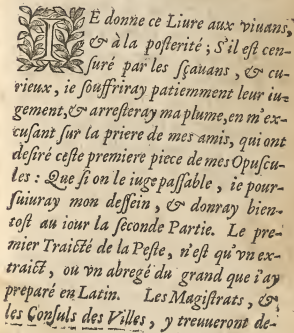 IE donne ce Liure aux viuans,
& à la posterité ; S'il est cen-
suré par les sçauans, & cu-
rieux, ie souffriray patiemment leur iu-
gement, & arresteray ma plume, en m'ex-
cusant sur la priere de mes amis, qui ont
desiré ceste premiere piece de mes Opuscu-
les : Que si on le iuge passable, ie pour-
suiuray mon dessein, & donray bien-
tost au iour la seconde Partie. Le pre-
mier Traicté de la Peste, n'est qu'vn ex-
traict, ou vn abregé du grand que i'ay
preparé en Latin. Les Magistrats, &
les Consuls des Villes, y treuueront de-